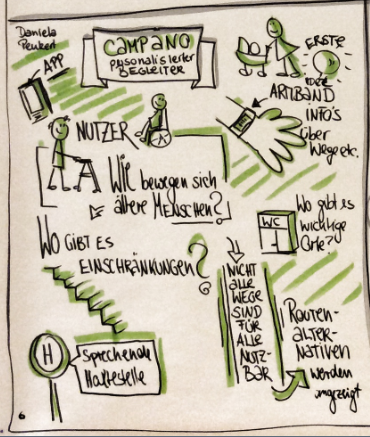 Daniela
Peukert
CAMPANO
personalisierter
BEGLEITER
APP
ERSTE
IDEE
ARMBAND
INFO'S
über
Wege etc.
NUTZER
Wie bewegen sich
ältere MENSCHEN?
WC
Wo gibt es
wichtige
Orte?
WO GIBT ES
EINSCHRÄNKUNGEN?
NICHT
ALLE
WEGE
SIND
FÜR
ALLE
NUTZ-
BAR
Routen-
ALTER-
NATIVEN
werden
angezeigt
H
Sprechende
Haltestelle
6